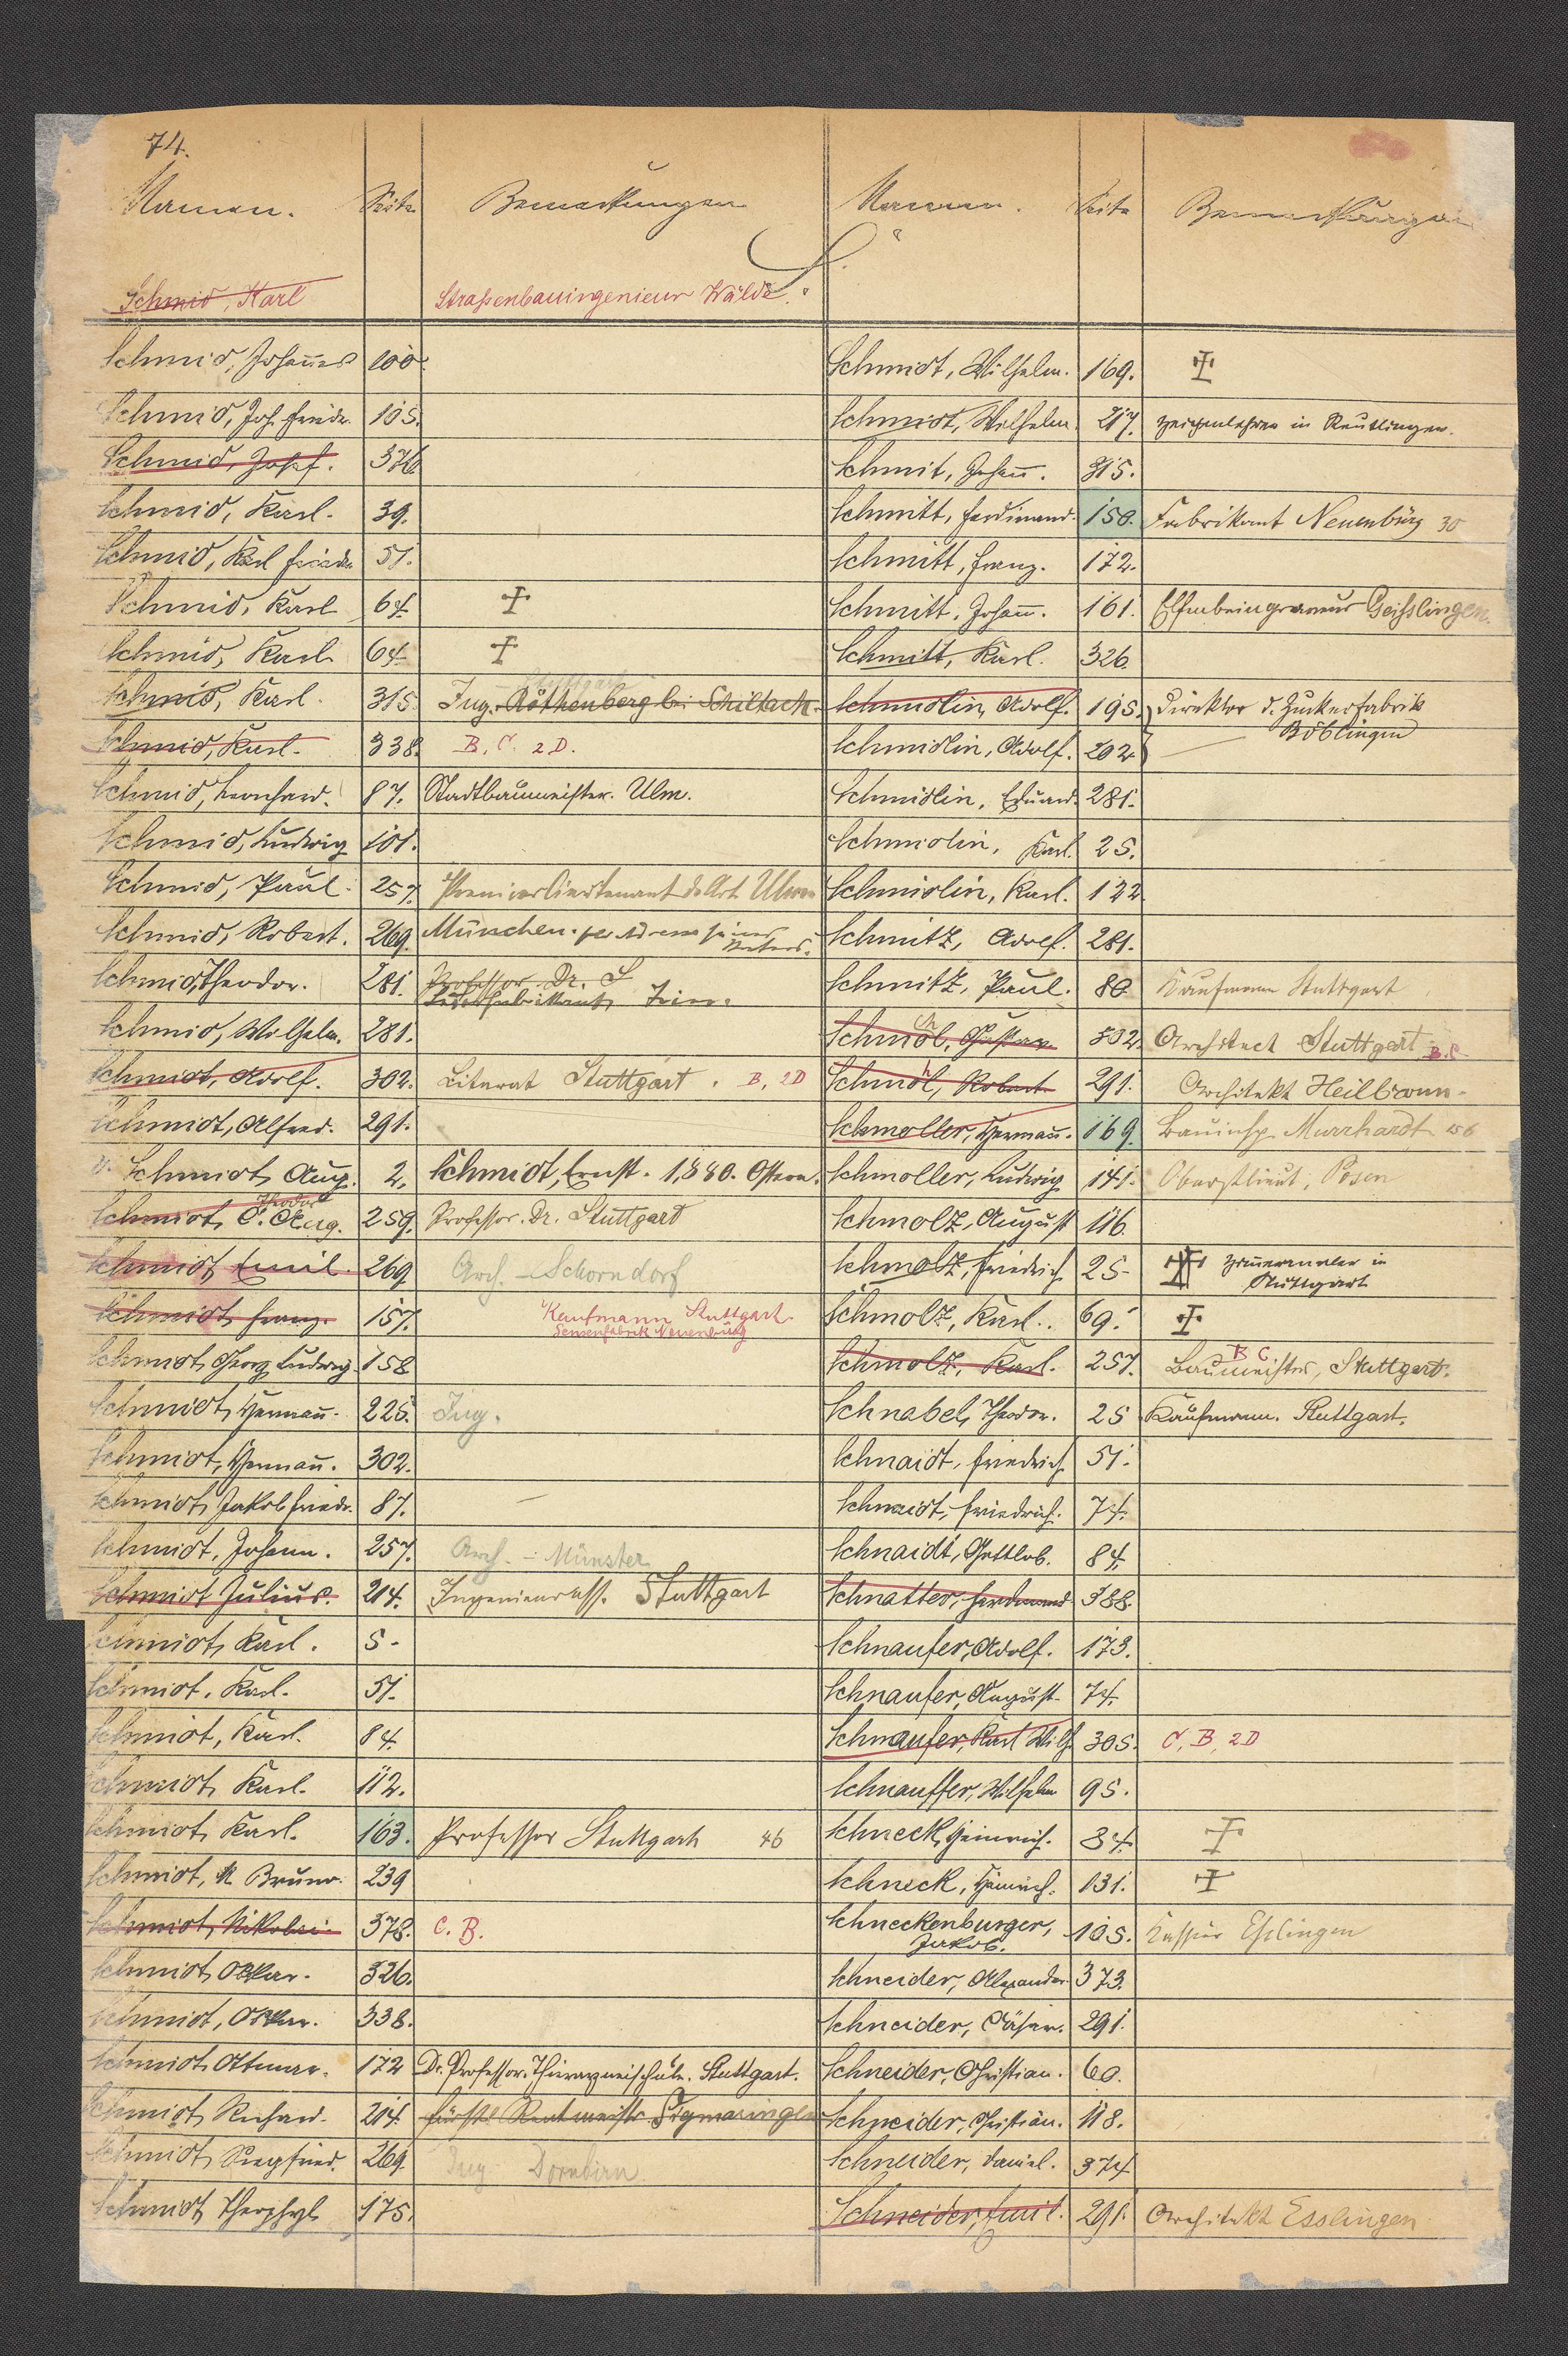 74.
Namen. Seite Bemerkungen Namen. Seite Bemerkungen
S.
Schmid, Karl Straßenbauingenieur Wälde.
Schmid, Johannes 100. Schmidt, Wilhelm. 169.
Schmid, Joh. Friedr. 105. Schmidt, Wilhelm. 217. Zeichenlehrer in Reutlingen.
Schmid, Josef. 376 Schmit, Johann. 315.
Schmid, Karl. 39. Schmitt, Ferdinand. 150. Fabrikant Neuenbürg 30
Schmid, Karl Friedr. 51. Schmitt, Franz. 172.
Schmid, Karl 64. Schmitt, Johann. 161. Elfenbeingraveur Geißlingen.
Schmid, Karl 64. Schmitt, Karl. 326.
Schmid, Karl. 315. Ing. Röthenberg bei Schiltach. Schmidlin, Adolf. 195. Direktor d. Zuckerfabrik
Böblingen
Schmid, Karl. 338. B, C. 2D. Schmidlin, Adolf. 202.
Schmid, Leonhard. 87. Stadtbaumeister. Ulm. Schmidlin, Eduard. 281.
Schmid, Ludwig 101. Schmidlin, Karl. 25.
Schmid, Paul. 257. Premierlieutenant d. Art. Ulm Schmidlin, Karl. 122
Schmid, Robert. 269. München. per Adresse seines
Vaters. Schmitz, Adolf. 281.
Schmid, Theodor. 281. Professor Dr. S Schmitz, Paul. 80 Kaufmann Stuttgart
Schmid, Wilhelm. 281. Schmol, Gustav 302. Architect Stuttgart B.C.
Schmidt, Adolf. 302. Literat Stuttgart. B, 2D Schmol, Robert 291. Architekt Heilbronn.
Schmidt, Alfred. 291. Schmoller, Hermann. 169. Bauinsp. Murrhardt 156
Schmidt, Aug. 2. Schmidt, Ernst. 1,880. Ostern. Schmoller, Ludwig 141. Oberstlieut, Posen
Theodor
Schmidt, O. Aug. 259. Professor. Dr. Stuttgart Schmolz, August 116
Schmidt, Emil. 269 Arch. - Schorndorf Schmolz, Friedrich 25 Zimmermaler in
Stuttgart
Schmidt, Franz. 157. Kaufmann Stuttgart.
Sensenfabrik Neuenbürg Schmolz, Karl. 69.
Schmidt, Georg Ludwig 158 Schmolz, Karl. 257. B C
Baumeister, Stuttgart.
Schmidt, Hermann. 225. Ing. Schnabel, Theodor. 25 Kaufmann. Stuttgart.
Schmidt, Hermann. 302. Schnaidt, Friedrich 51.
Schmidt, Jakob Friedr. 87. Schnaidt, Friedrich. 74.
Schmidt, Johann. 257. Arch. - Münster Schnaidt, Gottlob. 84.
Schmidt Julius. 214. Ingenieurass. Stuttgart Schnatter, Ferdinand 388.
Schmidt, Karl. 5 Schnaufer, Adolf. 173.
Schmidt, Karl. 51. Schnaufer, August 74.
Schmidt, Karl. 84. Schnaufer, Karl Wilh. 305. C, B, 2D
Schmidt, Karl. 112. Schnauffer, Wilhelm 95.
Schmidt, Karl. 163. Professor Stuttgart 46 Schneck, Heinrich. 84.
Schmidt, M Bruno. 239 Schneck, Heinrich. 131.
Schmidt, Nikolai 378. C. B. Schneckenburger,
Jakob. 105. Kassier Eßlingen
Schmidt, Oskar. 326. Schneider, Alexander 373.
Schmidt, Oskar. 338. Schneider, Cäsar. 291.
Schmidt, Ottmar. 172 Dr. Professor. Thierarzneischule. Stuttgart. Schneider, Christian. 60.
Schmidt, Richard. 214. fürstl Rentmeister Sigmaringen Schneider, Christian. 118.
Schmidt, Siegfried. 269. Ing Dornbirn Schneider, Daniel. 374
Schmidt, Theophyl 175. Schneider, Emil. 291. Architekt Esslingen